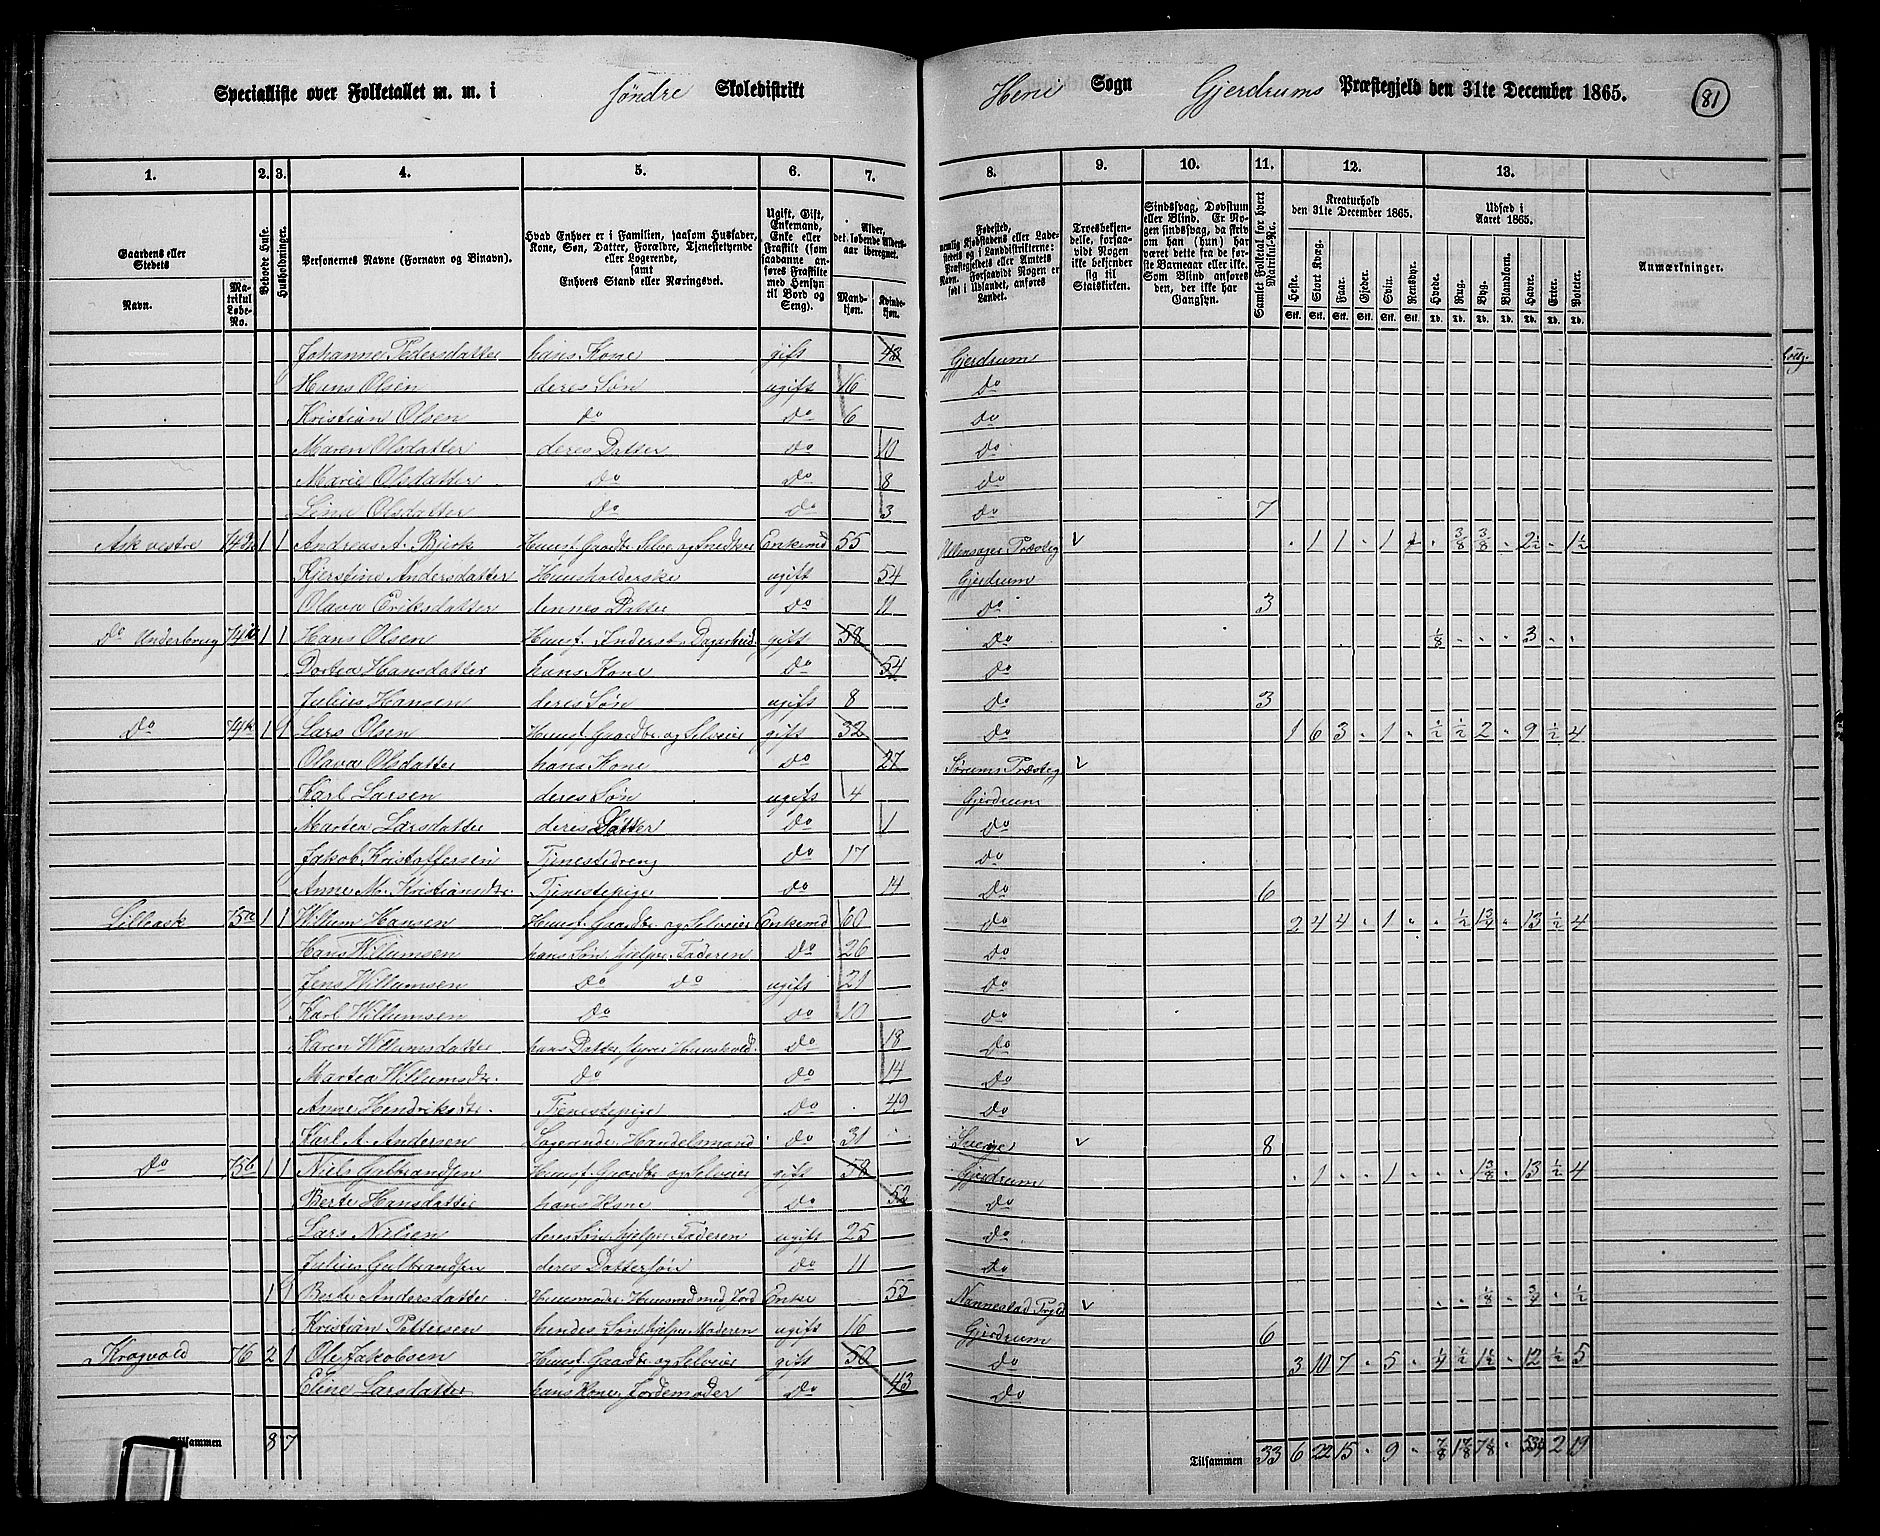 Specialliste over Folketallet m. m. i Søndre Skoledistrikt Heni Sogn Gjerdrums Præstegjeld den 31te December 1865. 81
1. 2. 3. 4. 5. 6. 7. 8. 9. 10. 11. 12. 13.
Gaardens eller Stedets
Navn.
Matrikul Løbe-No.
Beboede Huse.
Husholdninger.
Personernes Navne (Fornavn og Binavn).
Hvad Enhver er i Familien, saasom Husfader, Kone, Søn, Datter, Forældre, Tjenestetyende eller Logerende, samt Enhvers Stand eller Næringsvei.
Ugift, Gift, Enkemand, Enke eller Fraskilt (som saadanne anføres Fraskilte med Hensyn til Bord og Seng).
Alder, det løbende Aldersaar iberegnet.
Mandkjøn. Kvindekjøn.
Fødested, nemlig Kjøbstadens eller Ladestedets og i Landdistrikterne: Præstegjeldets eller Amtets Navn. Forsaavidt Nogen er født i Udlandet, anføres Landet.
Troesbekjendelse, forsaavidt Nogen ikke bekjender sig til Statskirken.
Sindssvag, Døvstum eller Blind. Er Nogen sindssvag, da skriv om han (hun) har været dette fra de første Barneaar eller ikke. Som Blind anføres den, der ikke har Gangsyn.
Samlet Folketal for hvert Matrikul-No.
Kreaturhold den 31te December 1865.
Heste. Stort Kvæg. Faar. Gjeder. Svin. Rensdyr.
Stk. Stk. Stk. Stk. Stk. Stk.
Udsæd i Aaret 1865.
Hvede. Rug. Byg. Blandkorn. Havre. Erter. Poteter.
Td. Td. Td. Td. Td. Td. Td.
Anmærkninger.
Johanne Pedersdatter hans Kone gift 48 Gjerdrum
Hans Olsen deres Søn ugift 16 Do
Kristian Olsen Do Do 6 Do
Maren Olsdatter deres Datter Do 10 Do
Marie Olsdatter Do Do 8 Do
Line Olsdatter Do Do 3 Do 7
Ask vestre 74 1 1 Andreas A. Bjerk Huusf. Gaardbr. Selve. og Snedker Enkemd 55 Ullensager Præsteg 1 1 - 1 3/8 3/8 - 2 1/2 - 1 1/2
Kjerstine Andersdatter Huusholderske ugift 54 Gjerdrum
Olava Eriksdatter hennes Datter Do 11 Do 3
Do Underbrug 74 1 1 Hans Olsen Huusf. Inderst. Dagarbeid. gift 58 Do 1/8 - - - 3 - -
Dortea Hansdatter hans Kone Do 54 Do
Julius Hansen deres Søn ugift 8 Do 3
Do 74 1 1 Lars Olsen Huusf. Gaardbr. og Selveier gift 32 Do 1 6 3 - 1 - 1/2 1/2 2 - 9 1/2 4
Olava Olsdatter hans Kone Do 27 Sørums Præsteg
Karl Larsen deres Søn ugift 4 Gjerdrum
Martea Larsdatter deres Datter Do 1 Do
Jakob Kristoffersen Tjenestedreng Do 17 Do
Anne M. Kristiansdtr. Tjenestepige Do 14 Do 6
Lilleask 75a 1 1 Willum Hansen Huusf. Gaardbr. og Selveier Enkemd 60 Do 2 4 4 - 1 - - 1/2 1 3/4 - 13 1/2 4
Hans Willumsen hans Søn, hjelper Faderen Do 26 Do
Jens Willumsen Do Do ugift 21 Do
Karl Willumsen Do Do 10 Do
Karen Willumsdatter hans Datter, styrer Huushold. Do 18 Do
Martea Willumsdtr. Do Do 14 Do
Anne Hendriksdtr. Tjenestepige Do 49 Do
Karl A. Andersen Logerende, Handelsmand Do 31 Sverige 8
Do 75b 1 1 Niels Gulbrandsen Huusf. Gaardbr. og Selveier gift 58 Gjerdrum - 1 - - 1 - - - 1 3/8 - 13 1/2 4
Berte Hansdatter hans Kone Do 52 Do
Lars Nielsen deres Søn, hjelper Faderen ugift 25 Do
Julius Gulbrandsen deres Dattersøn Do 11 Do
1 Berte Andersdatter Huusmoder, Huusmd med Jord Enke 55 Nannestad Prgld - - 1/8 - 3/4 - 1/2
Kristian Pettersen hendes Søn, hjelper Moderen ugift 16 Gjerdrum 6
Krogvold 76 2 1 Ole Jakobsen Huusf. Gaardbr. og Selveier gift 50 Do 3 10 7 - 5 - 1/4 1/2 1 1/2 - 12 1/2 5
Eline Larsdatter hans Kone, Jordemoder Do 43 Do
Tilsammen 8 7 Tilsammen 33 6 22 15 - 9 - 7/8 1 7/8 7 1/8 - 53 3/4 2 19